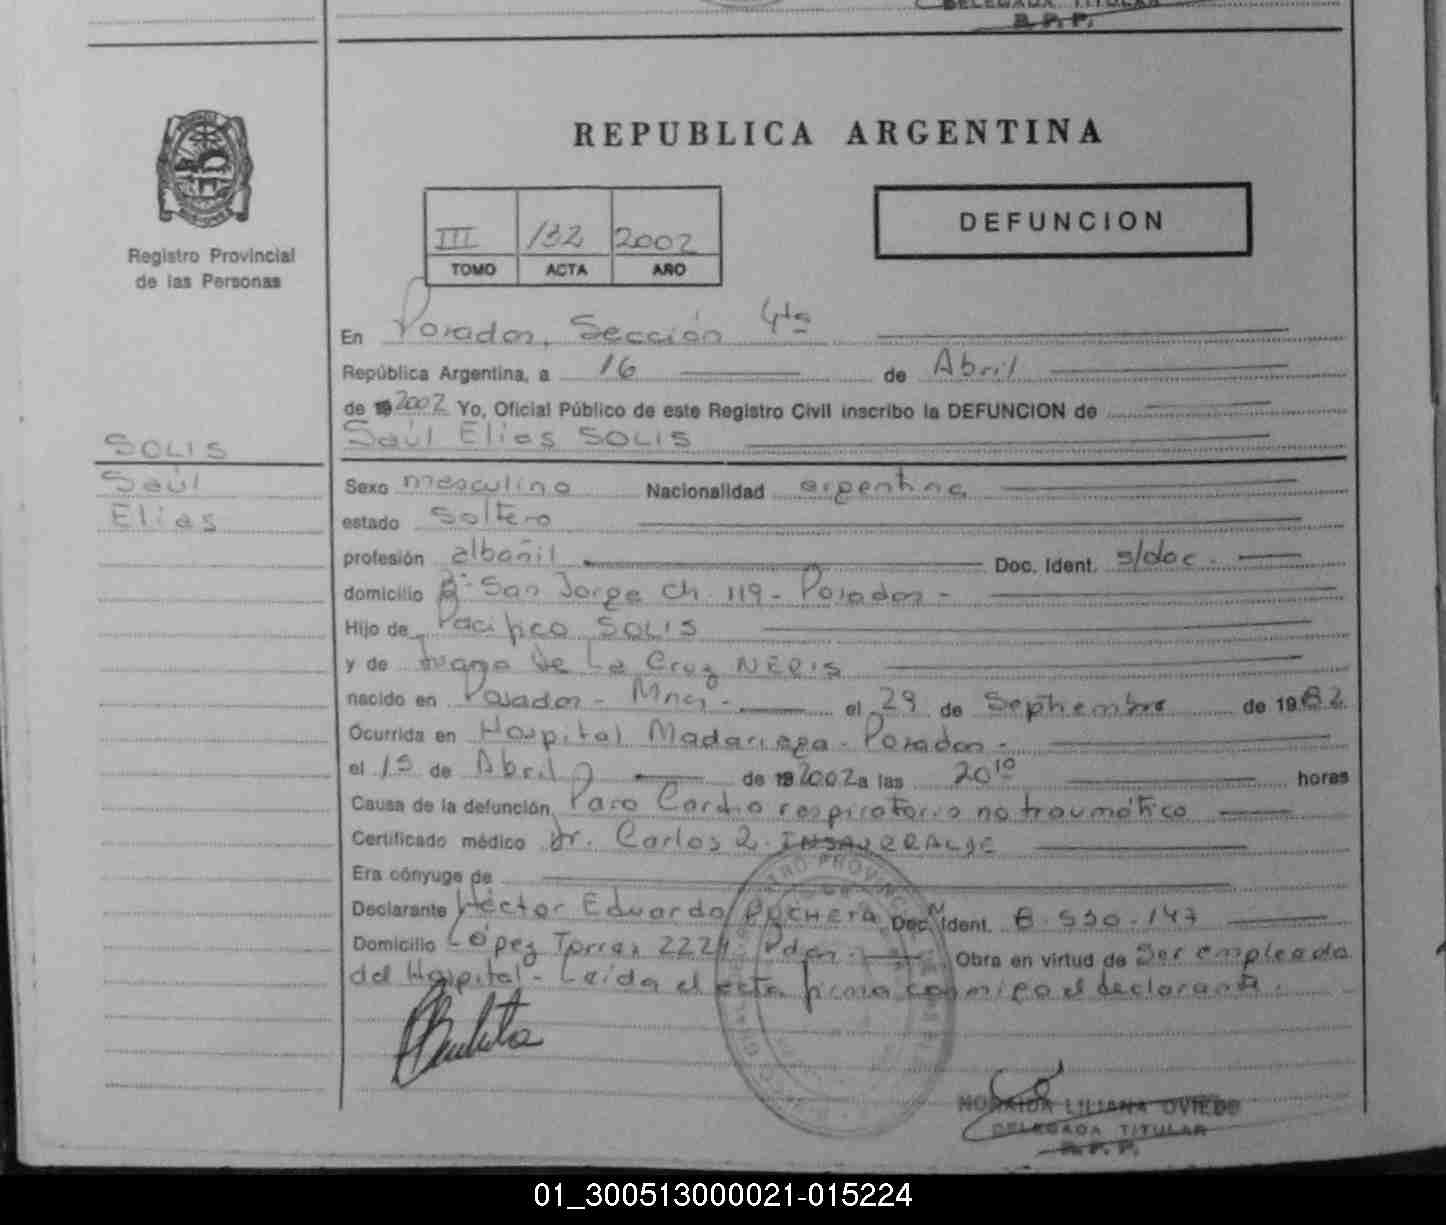 DELEGADA TITULAR
R.P.P.
Registro Provincial
de las Personas
REPUBLICA ARGENTINA
III 132 2002
TOMO ACTA AÑO
DEFUNCION
En Posadas, Sección 4ta
República Argentina, a 16 de Abril
de 19 2002 Yo, Oficial Público de este Registro Civil inscribo la DEFUNCION de
Saúl Elias SOLIS
SOLIS
Saúl
Elias
Sexo masculino Nacionalidad argentina
estado soltero
profesión albañil Doc. Ident. s/doc.
domicilio Bº San Jorge Ch. 119 - Posadas -
Hijo de Pacifico SOLIS
y de Juana De La Cruz NERIS
nacido en Posadas - Mnes - el 29 de Septiembre de 1982
Ocurrida en Hospital Madariaga - Posadas -
el 15 de Abril de 19 2002 a las 20 10 horas
Causa de la defunción Paro Cardio respiratorio no traumático
Certificado médico Dr. Carlos R. INSAURRALDE
Era cónyuge de
Declarante Héctor Eduardo Doc. Ident. 8.530.147
Domicilio López Torres 2224 - Pdas - Obra en virtud de Ser empleado
del Hospital - Leída el acta firma conmigo el declarante.
REGISTRO PROVINCIAL
LILIANA OVIEDO
DELEGADA TITULAR
R.P.P.
01_300513000021-015224